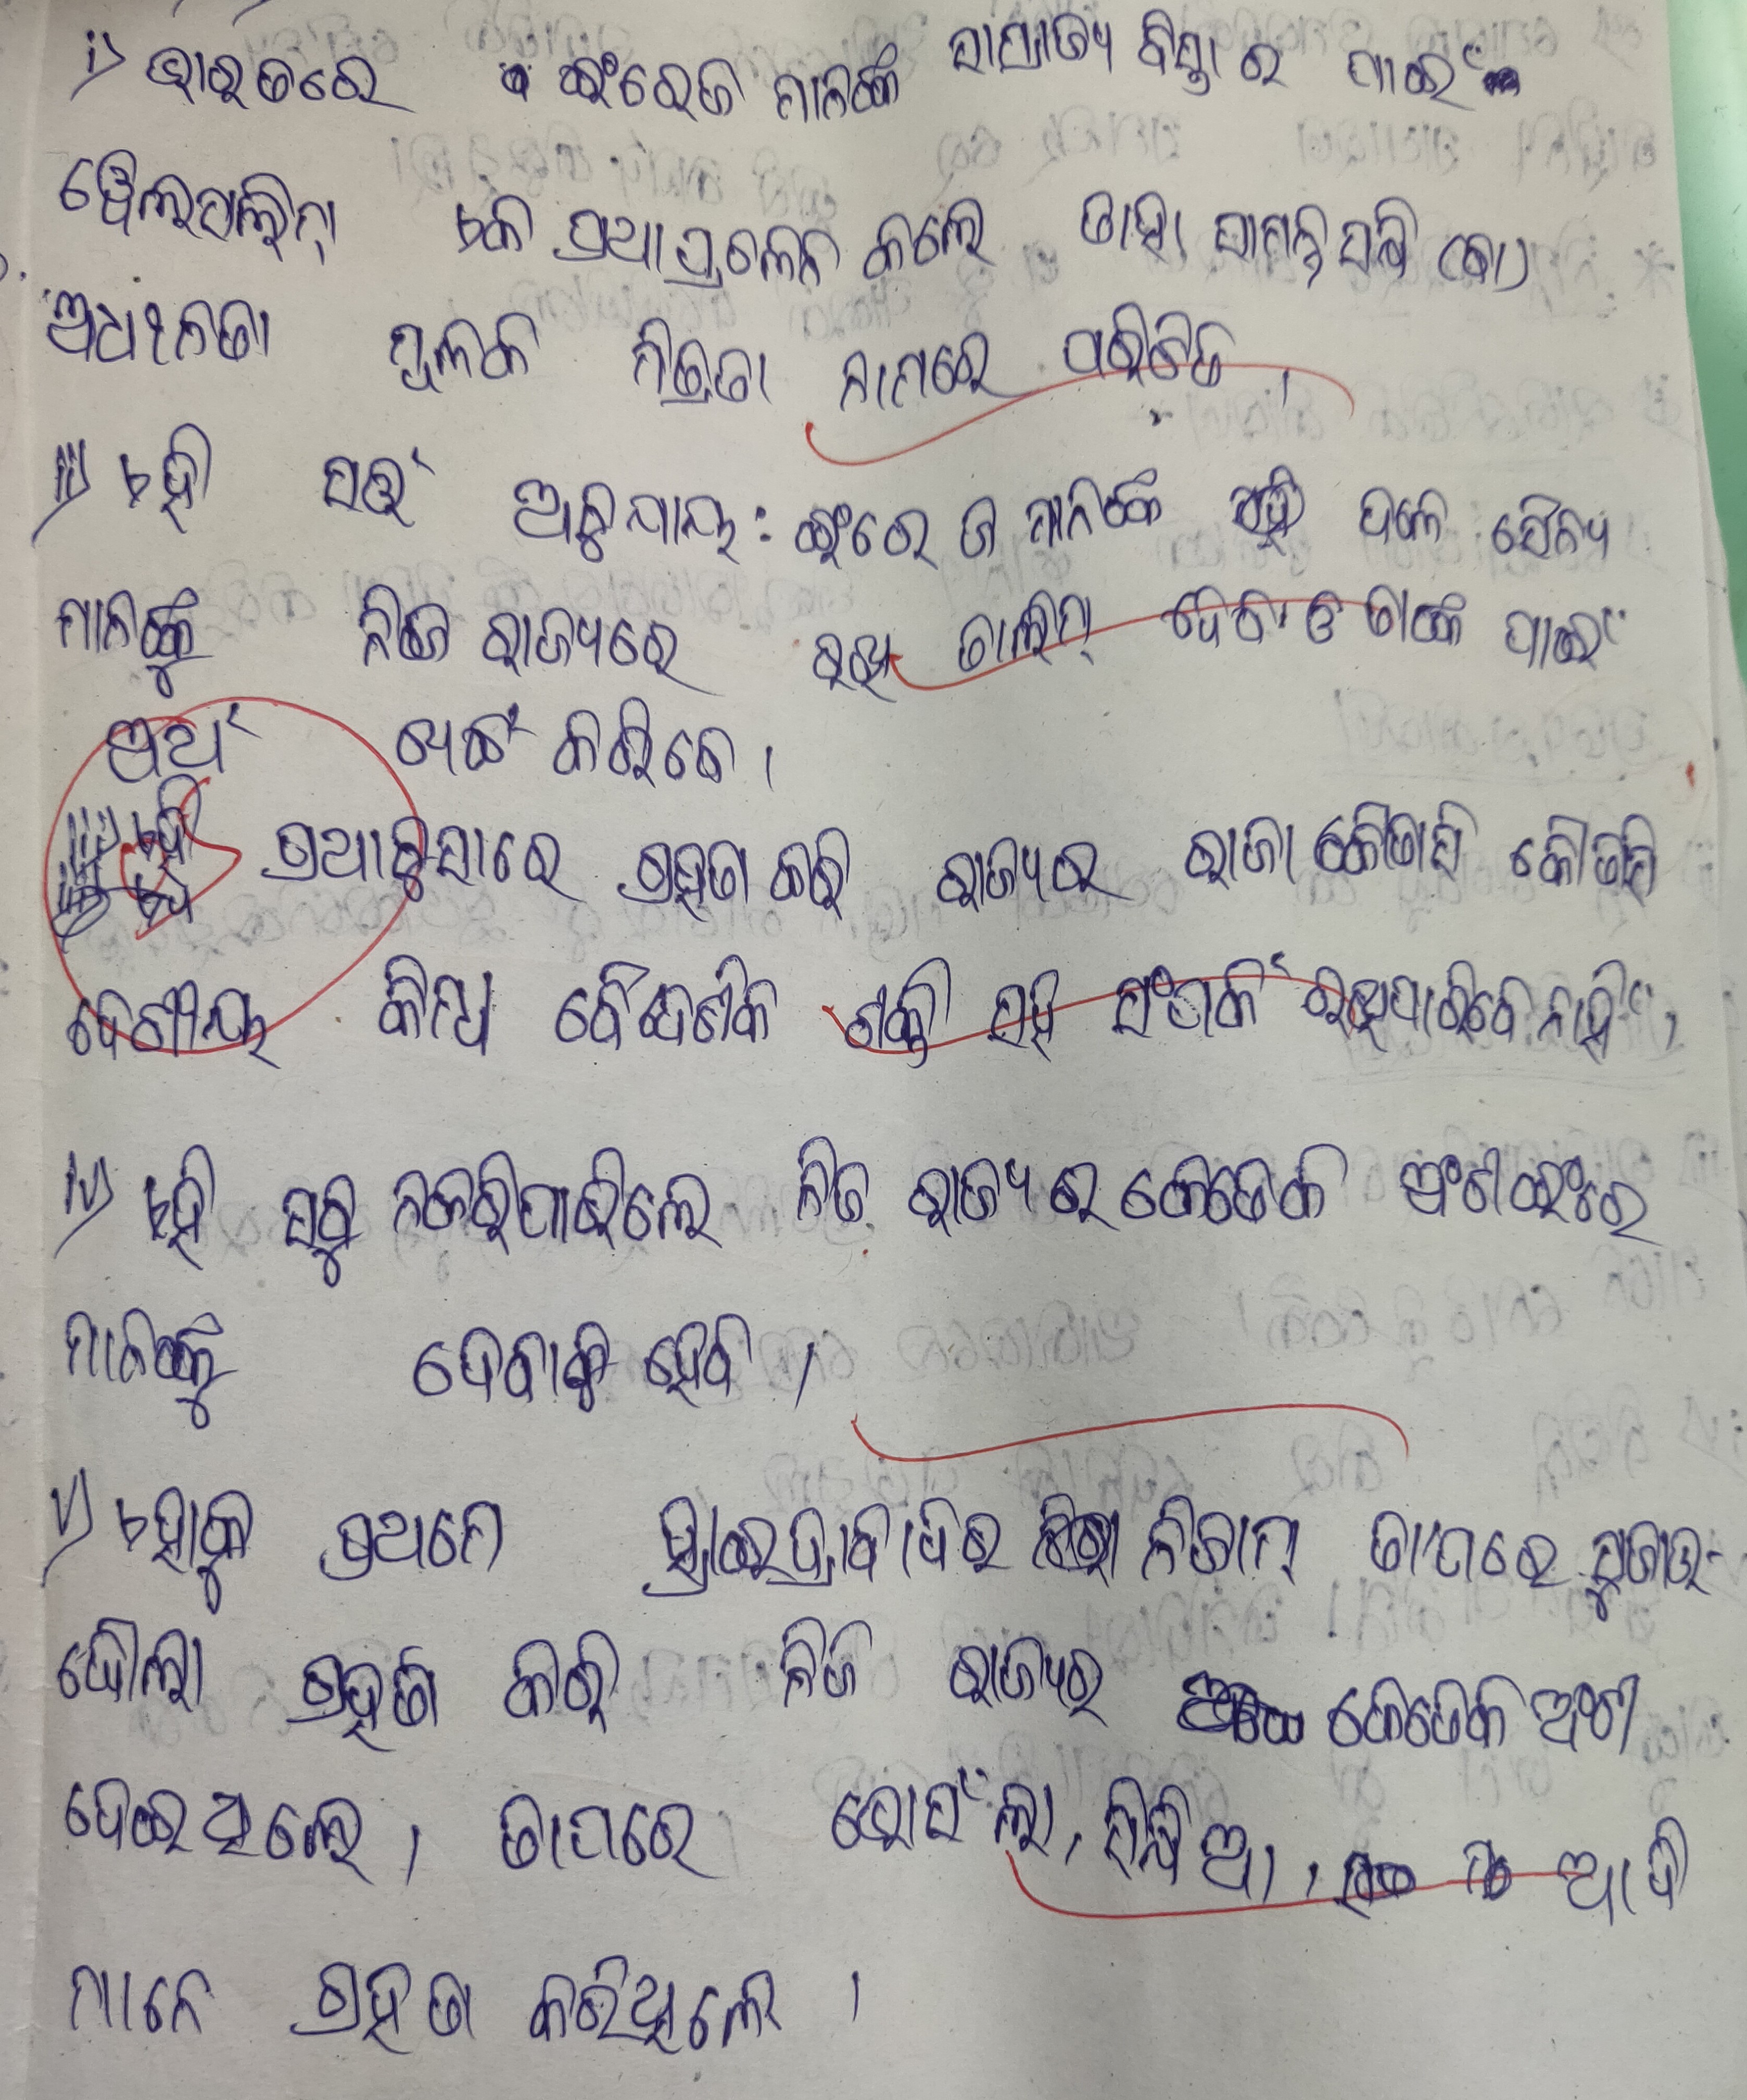 i) ଭାରତରେ ଇଂରେଜ ମାନଙ୍କ ସାମ୍ରାଜ୍ୟ ବିସ୍ତାର ପାଇଁ
ୱେଲେସଲିନ୍ ଏକ ପ୍ରଥା ପ୍ରଚଳନ କଲେ ତାହା ସାମନ୍ତ ସନ୍ଧି (ବା)
ଅଧୀନତା ମୂଳକ ମିତ୍ରତା ନାମରେ ପରିଚିତ ।
ii) ଏହି ସର୍ତ୍ତ ଅନୁଯାୟୀ ଇଂରେଜ ମାନଙ୍କ ଦଳେ ସୈନ୍ୟ
ମାନଙ୍କୁ ନିଜ ରାଜ୍ୟରେ ରଖି ତାଲିମ୍ ଦେବା ଓ ତାଙ୍କ ପାଇଁ
ଅର୍ଥ ଖର୍ଚ୍ଚ କରିବେ ।
iii) ଏହି ପ୍ରଥାନୁସାରେ ଗ୍ରହଣ କରି ରାଜ୍ୟର ରାଜା କୌଣସି କୌଣସି
ଦେଶୀୟ କିମ୍ବା ବୈଦେଶିକ ଶକ୍ତି ସହ ସଂପର୍କ ରଖିପାରିବେ ନାହିଁ ।
iv) ଏହି ସବୁ ନକରିପାରିଲେ ନିଜ ରାଜ୍ୟର କେତେକ ଅଂଶ ଇଂରେ
ମାନଙ୍କୁ ଦେବାକୁ ହେବ ।
v) ଏହାକୁ ପ୍ରଥମେ ହାଇଦ୍ରାବାଦର ନିଜାମ୍ ତାପରେ ସୁଜାଉ-
ଦୌଲା ଗ୍ରହଣ କରି ନିଜ ରାଜ୍ୟର କେତେକ ଅଂଶ
ଦେଇଥିଲେ । ତାପରେ ଭୋସଁଲା, ସିନ୍ଧିଆ, ଆଦି
ମାନେ ଗ୍ରହଣ କରିଥିଲେ ।